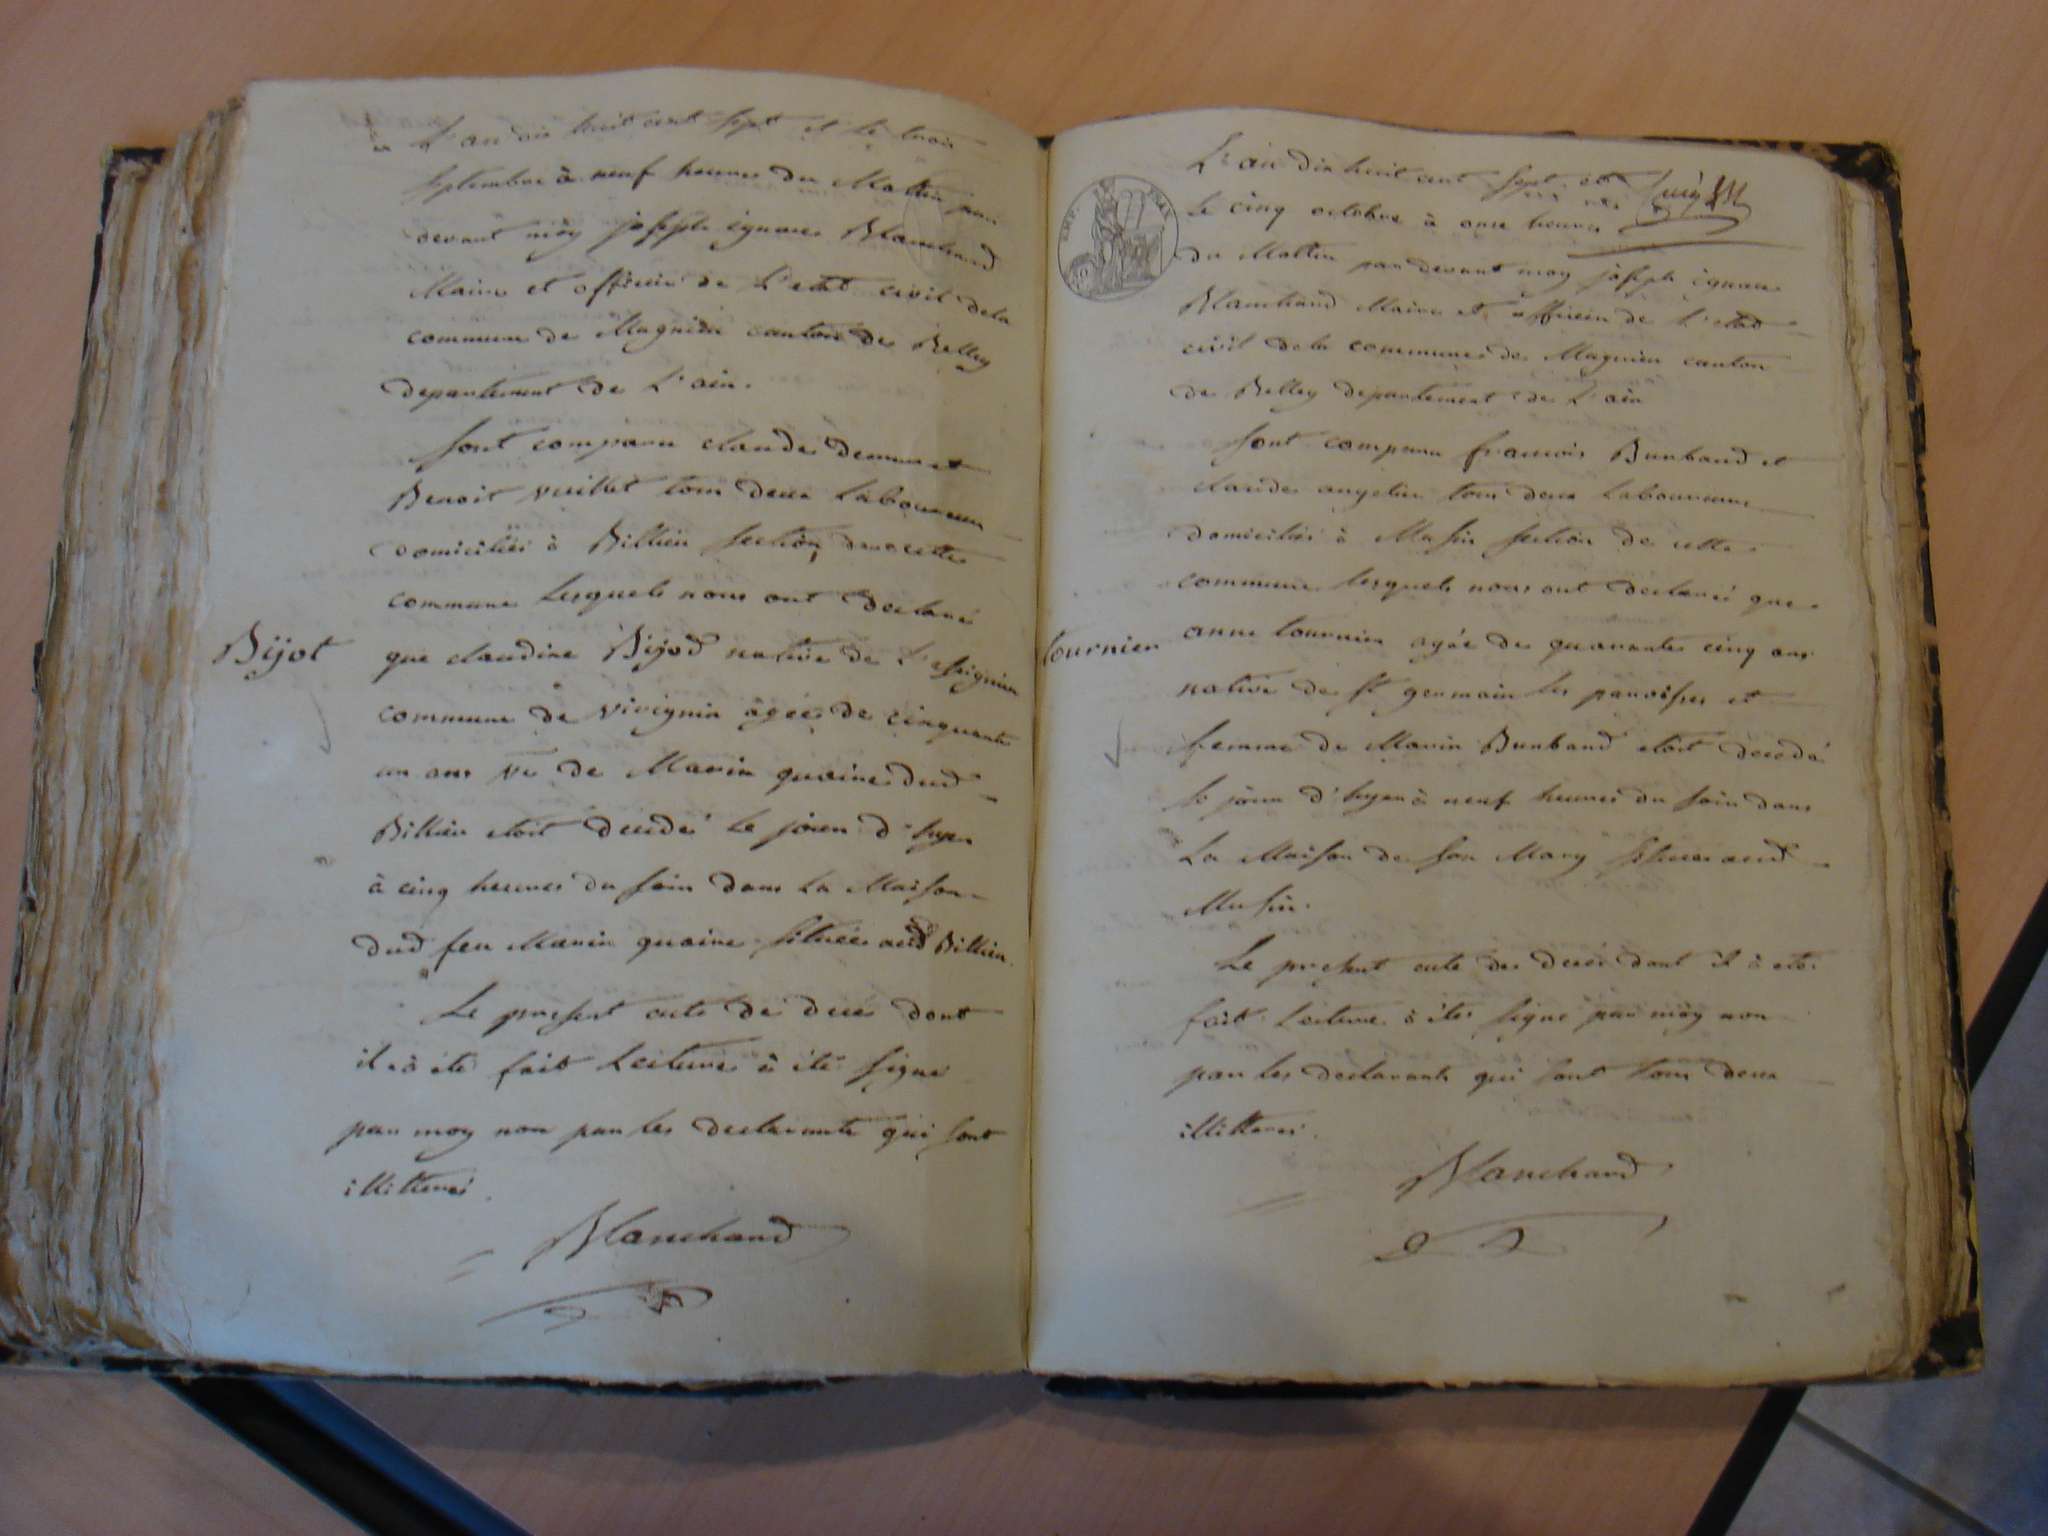 L'an dix huit cent sept et le trois
septembre à neuf heures du Mattin par
devant moy joseph ignace Blanchand
Maire et officier de L'etat civil dela
commune de Magnieu canton de Belley
departement de L'ain.
sont comparu claude demeure et
Benoit vuillet tous deux Laboureurs
domiciliés à Billieu section de cette
commune Lesquels nous ont declaré
Bijot
que claudine Bijod native de
commune de virignin agée de cinquante
un ans ve de Marin quaine dud
Billieu etoit decedé Le jour d'hyer
à cinq heures du soir dans La Maison
dud feu Marin quaine située aud Billieu.
Le present acte de decés dont
il à été fait Lecture à été signé
par moy non par les declarants qui sont
illitterés.
Blanchand
EMP. FRAN.
L'an dix huit cent sept et
Le cinq octobre à onze heures
du Mattin par devant moy joseph ignace
Blanchand Maire et officier de L'etat
civil dela commune de Magnieu canton
de Belley departement de L'ain
sont comparu francois Bunband et
claude angelier tous deux Laboureurs
domiciliés à Musin section de cette
commune lesquels nous ont declaré que
tournier
anne tournier agée de quarante cinq ans
native de st germain les paroisses et
femme de Marin Bunband etoit decedé
le jour d'hyer à neuf heures du soir dans
La Maison de son Mary située aud
Musin.
Le present acte de decés dont il à eté
fait Lecture à été signé par moy non
par les declarants qui sont tous deux
illitterés.
Blanchand